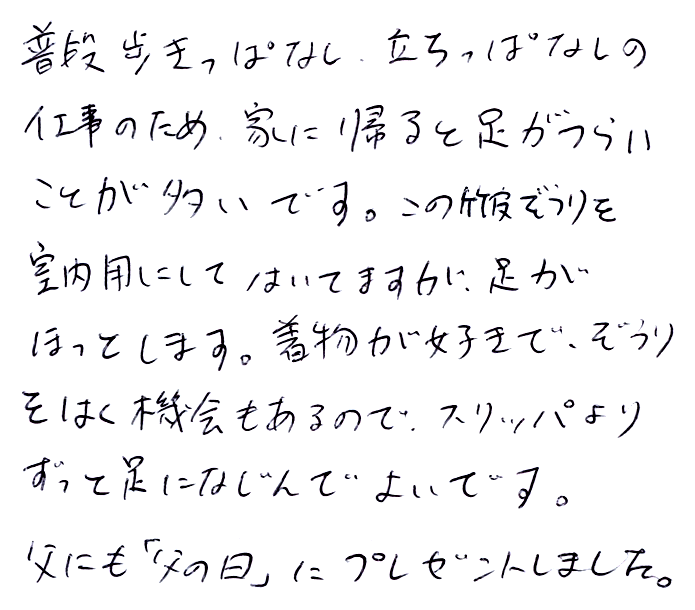 普段歩きっぱなし、立ちっぱなしの
仕事のため、家に帰ると足がつらい
ことが多いです。この竹皮ぞうりを
室内用にしてはいてますが、足が
ほっとします。着物が好きで、ぞうり
をはく機会もあるので、スリッパより
ずっと足になじんでよいです。
父にも「父の日」にプレゼントしました。